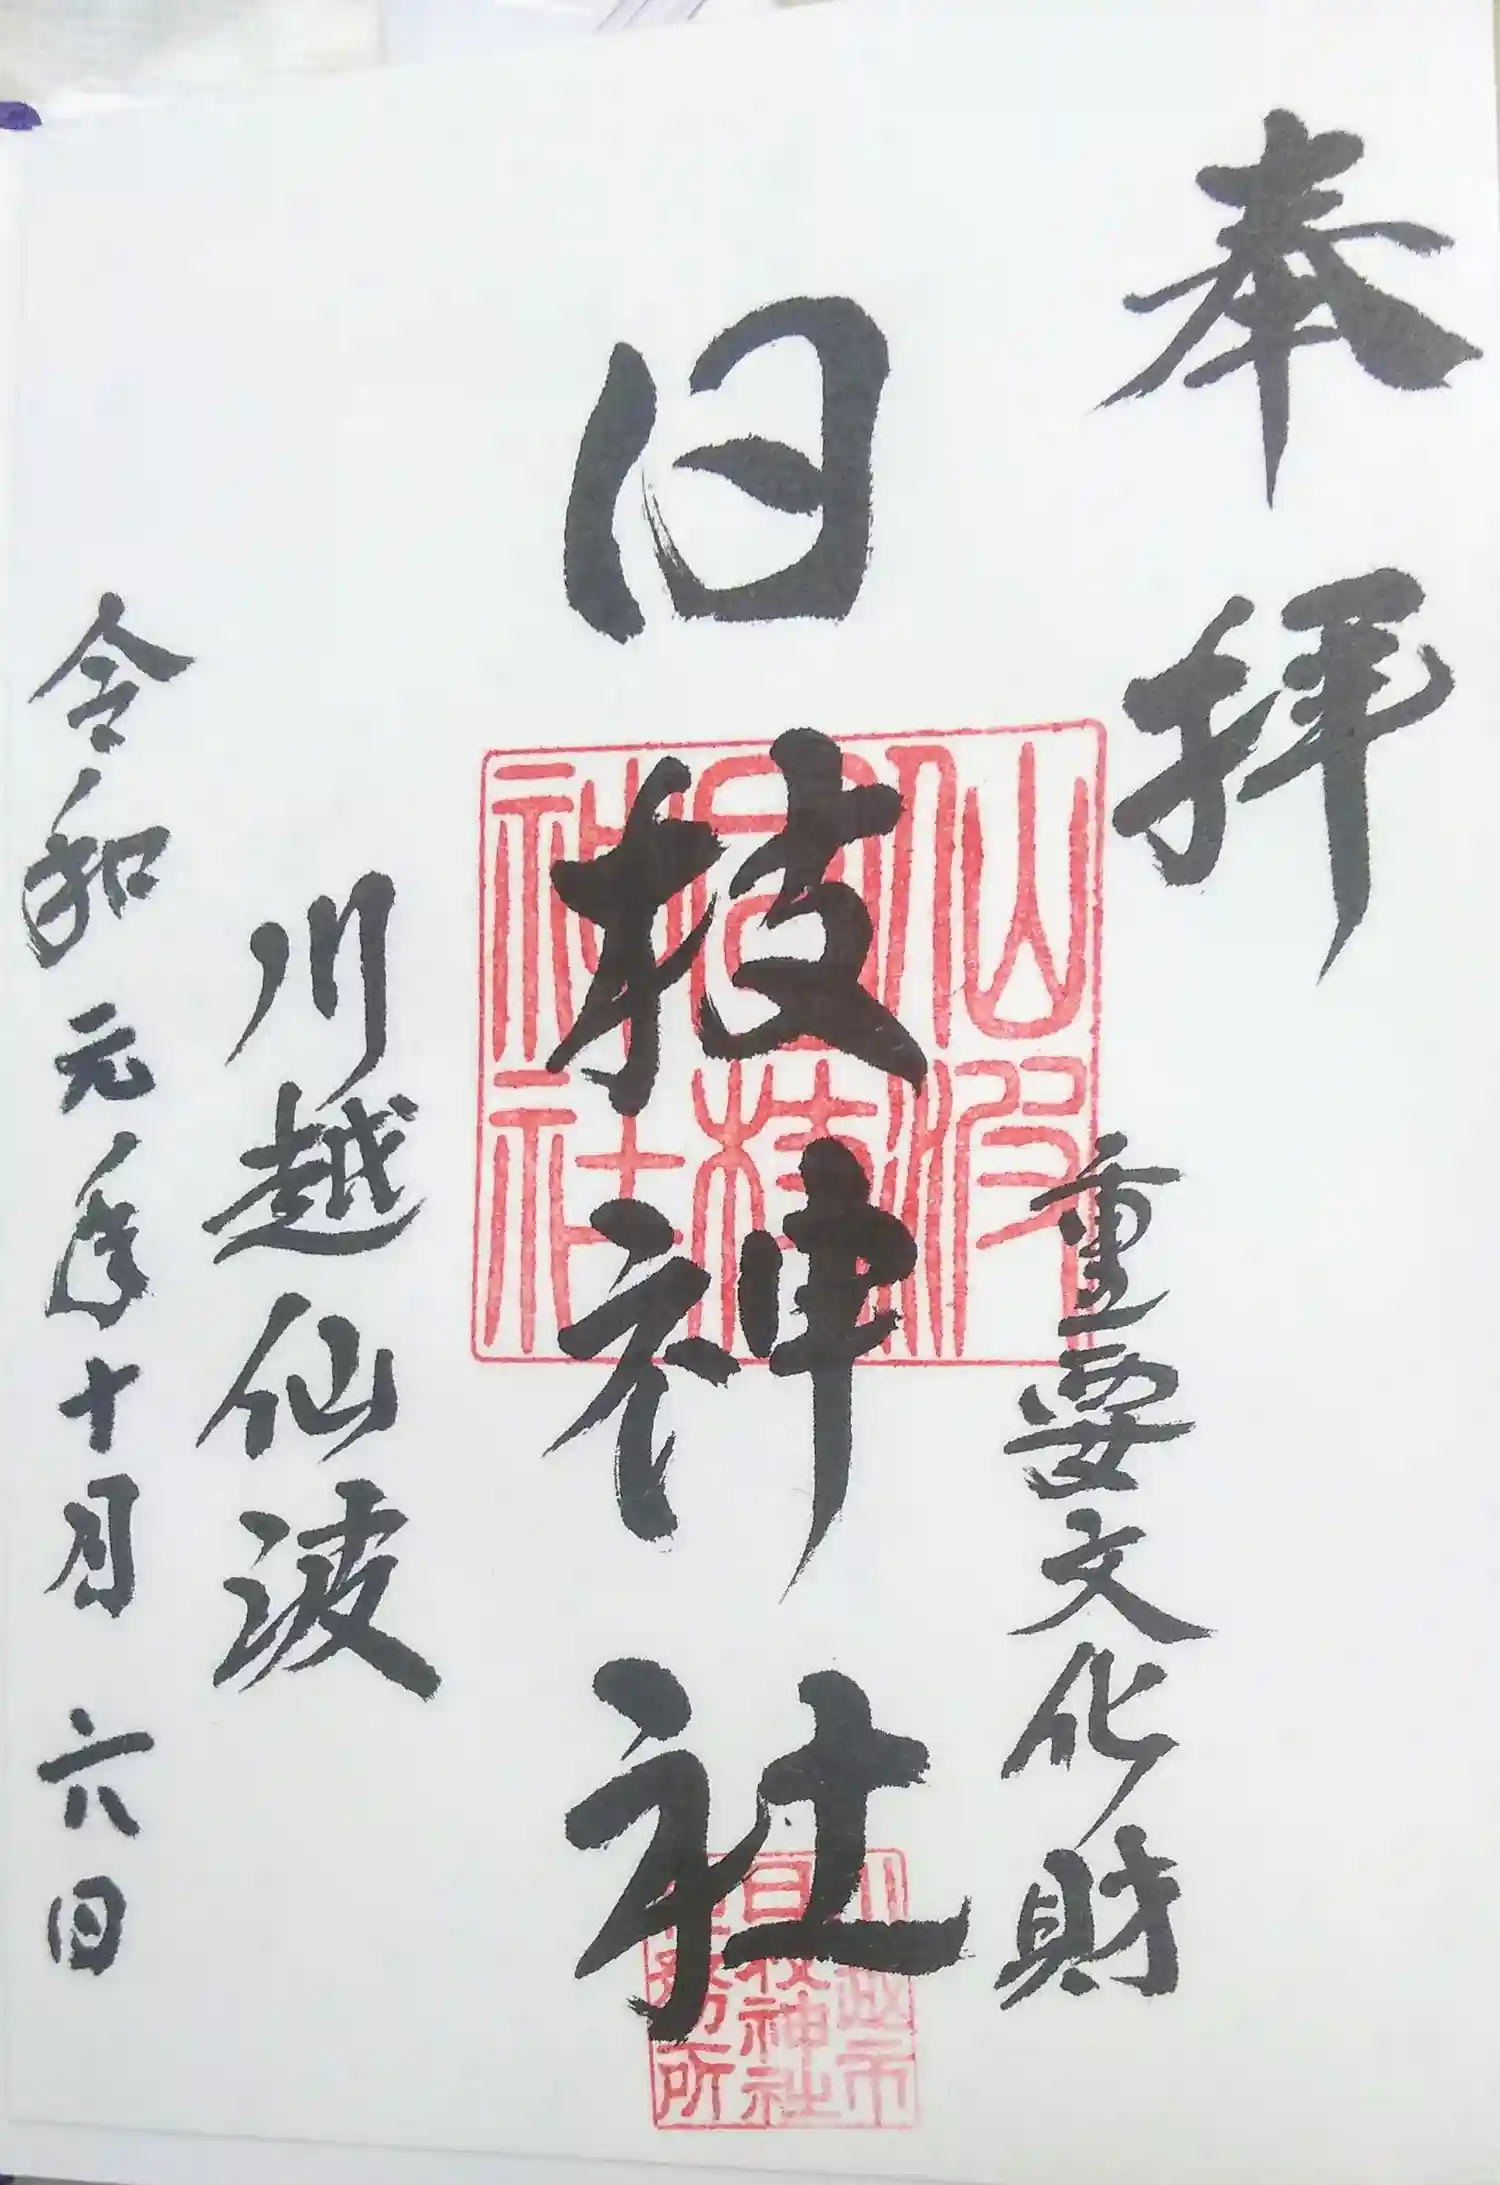 奉拝
重要文化財
日枝神社
川越仙波
令和元年十月六日
仙波
日枝
神社
川越市
日枝神社
社務所